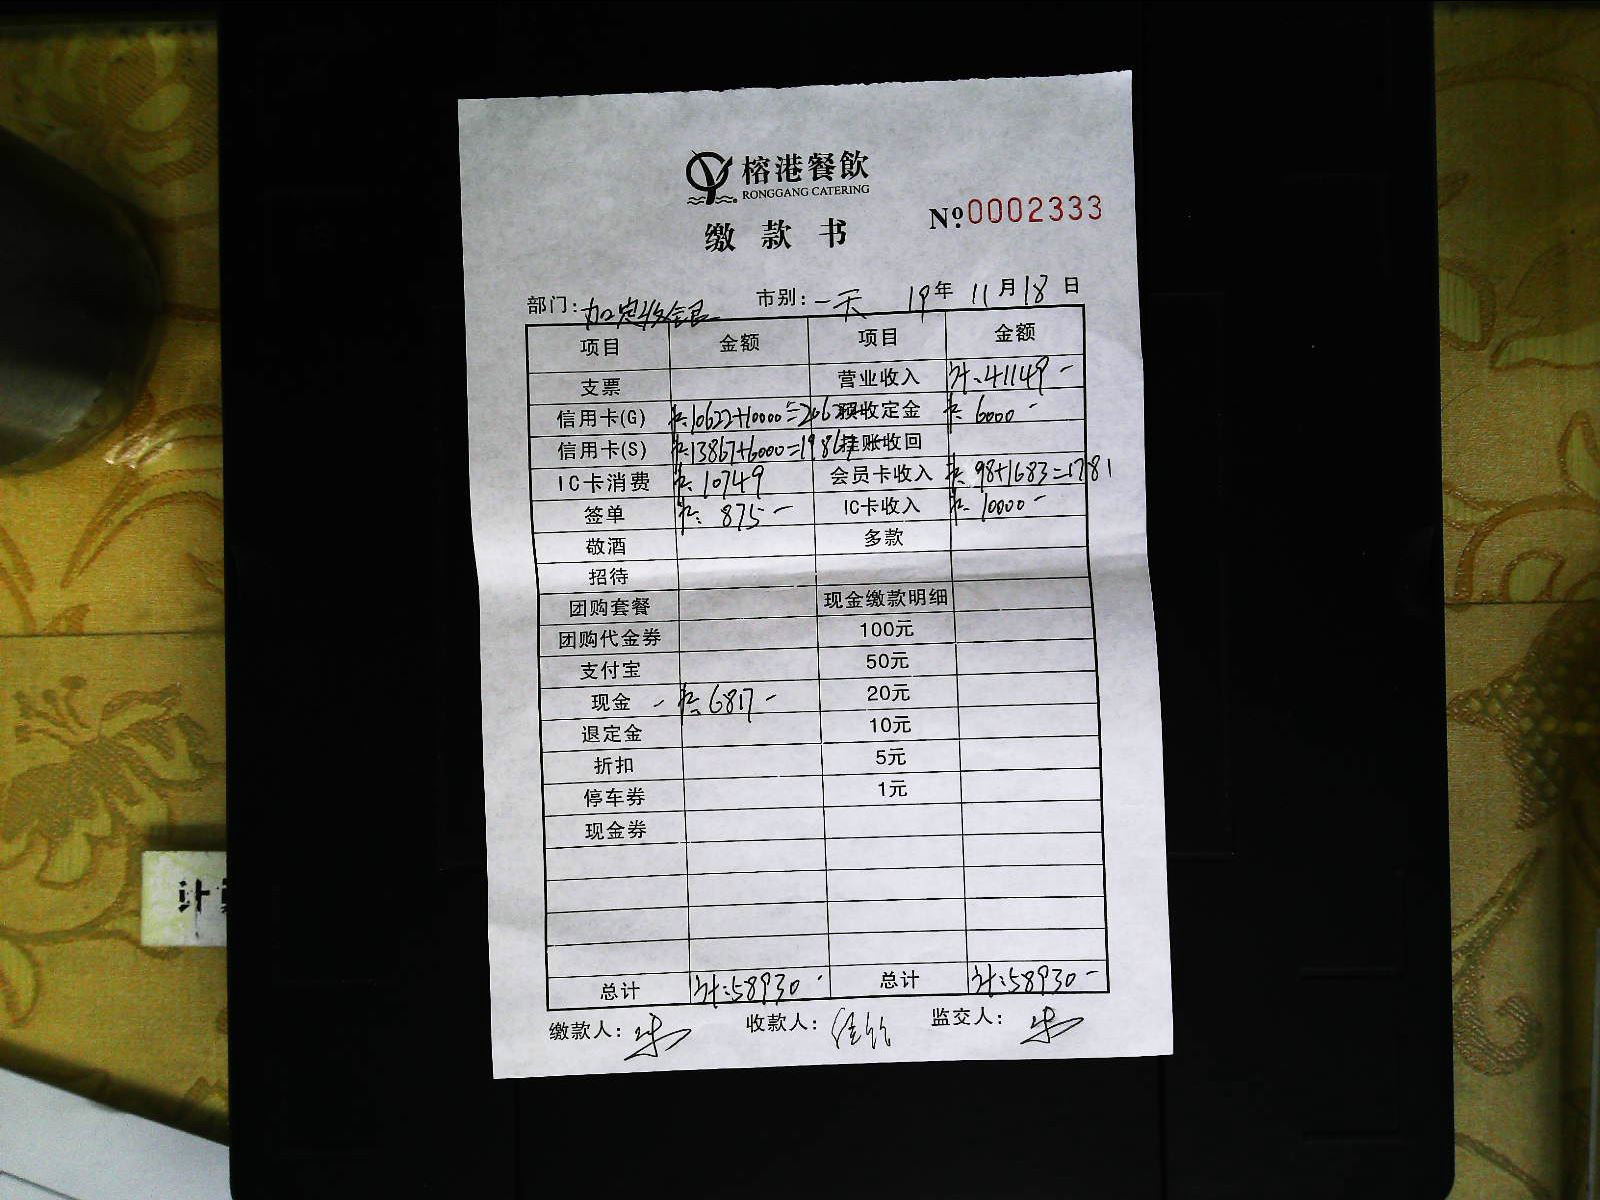 榕港餐飲
RONGGANG CATERING
缴 款 书
№ 0002333
部门: 加定收银 市别: 一天 19年 11月18日
项目 金额 项目 金额
支票 营业收入 计:41149-
信用卡(G) 10622+10000=2062 预收定金 6000-
信用卡(S) 13867+6000=1986 挂账收回
IC卡消费 10749 会员卡收入 98+1683=1781
签单 875- IC卡收入 10000-
敬酒 多款
招待
团购套餐 现金缴款明细
团购代金券 100元
支付宝 50元
现金 - 6817- 20元
退定金 10元
折扣 5元
停车券 1元
现金券
总计 计:58930- 总计 计:58930-
缴款人: 收款人: 监交人:
计